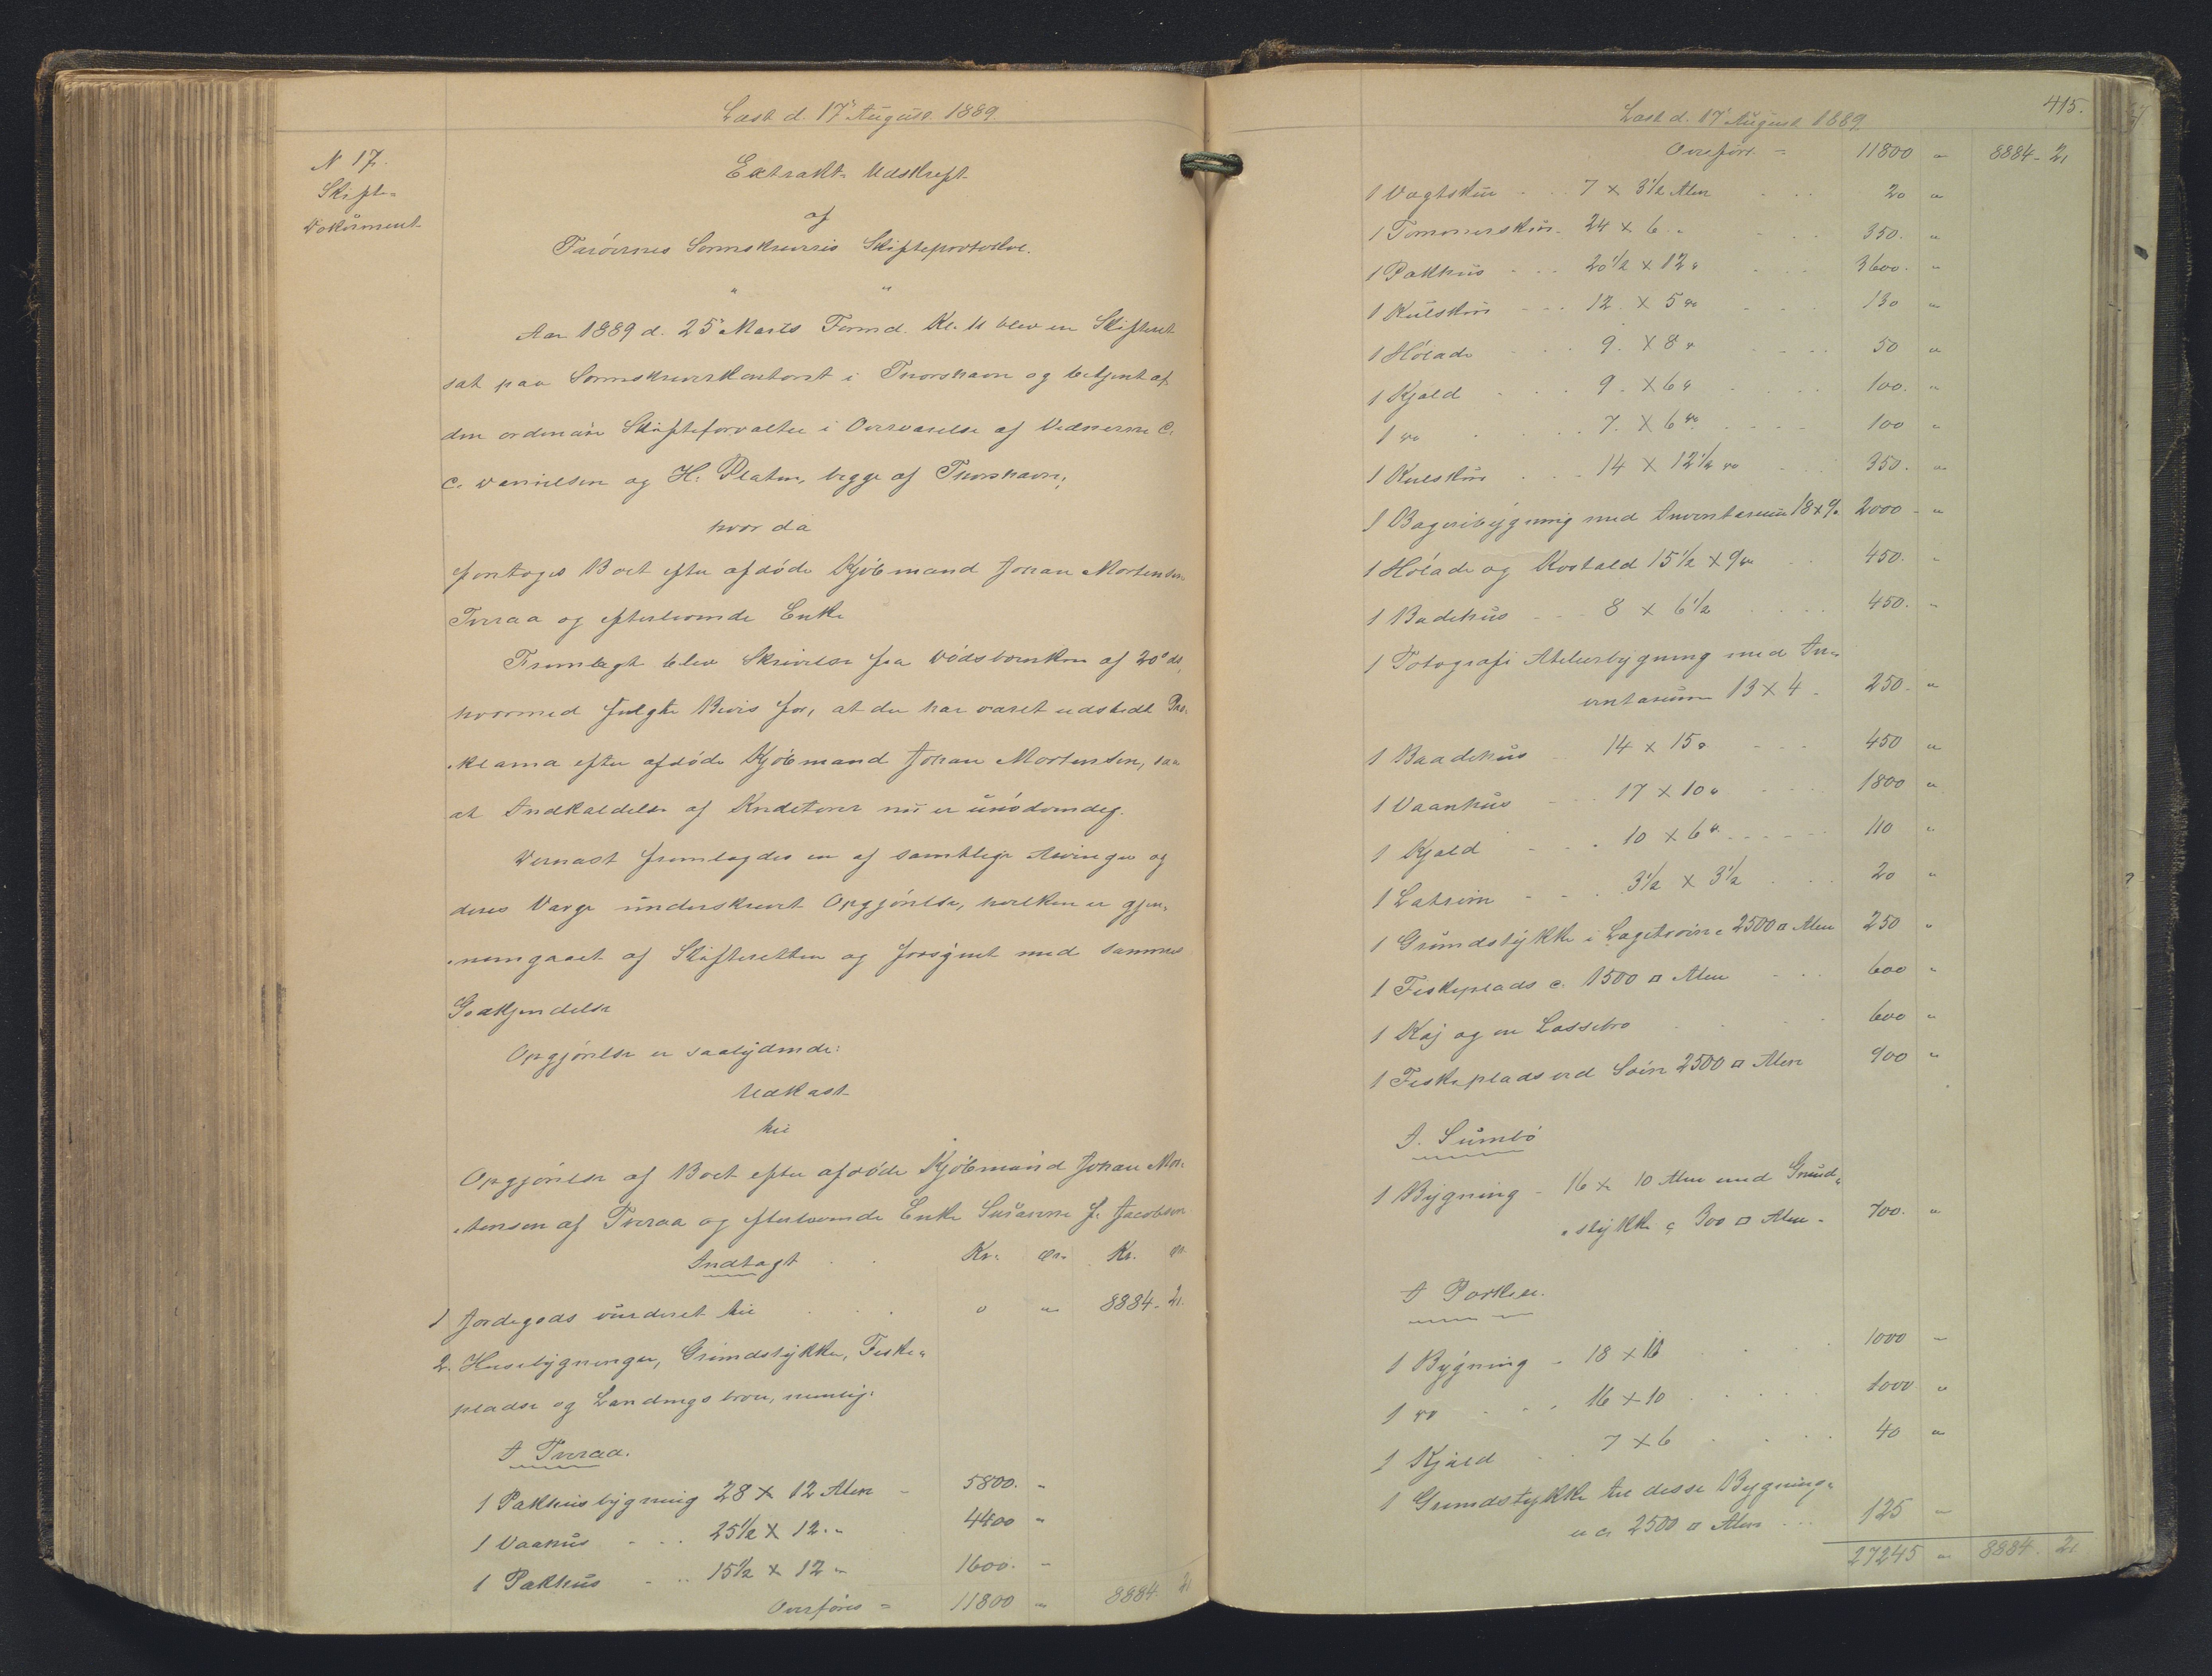 Læst d. 17' August 1889.
N 17.
Skifte-
Dokument
Extrakt-Udskrift
af
Færøernes Sorenskriveries Skifteprotokol.
" "
Aar 1889 d. 25' Marts Formd. Kl. 11 blev en Skifteret
sat paa Sorenskriverkontoret i Thorshavn og betjent af
den ordinære Skifteforvalter i Overværelse af Vidnerne C.
C. Danielsen og H. Platen, begge af Thorshavn,
hvor da
foretoges Boet efter afdøde Kjøbmand Johan Mortensen
Tveraa og efterlevende Enke
Fremlagt blev Skrivelse fra Dødsboenken af 20' ds,
hvormed fulgte Bevis for, at der har været udstedt Pro-
klama efter afdøde Kjøbmand Johan Mortensen, saa
at Indkaldelse af Kreditorer nu er unødvendig.
Dernæst fremlagdes en af samtlige Arvinger og
deres Værge underskrevet Opgjørelse, hvilken er gjen-
nemgaaet af Skifteretten og forsynet med sammes
Godkjendelse
Opgjørelse er saalydende:
Udkast
til
Opgjørelse af Boet efter afdøde Kjøbmand Johan Mor-
tensen af Tveraa og efterlevende Enke Susanne f. Jacobsen
Indtægt Kr. Ør. Kr. Ør.
1 Jordegods vurderet til " " 8884. 21.
2. Husebygninger, Grundstykker, Fiske-
pladse og Landingsbroer, nemlig:
I Tveraa.
1 Pakhusbygning 28 x 12 Alen - 5800. "
1 Vaahus 25½ x 12 " 4400 "
1 Pakhus 15½ x 12 " 1600. "
Overføres = 11800 " 8884. 21
415.
Læst d. 17' August 1889
Overført = 11800 " 8884 - 21
1 Vagtskur 7 x 3½ Alen 20 "
1 Tømmerskur 24 x 6 " 350. "
1 Pakhus 20½ x 12 " 3600. "
1 Kulskur 12 x 5 " 130 "
1 Hølade 9. x 8 " 50 "
1 Kjald 9. x 6 " 100. "
1 do 7. x 6 " 100 "
1 Kulskur 14 x 12½ " 350. "
1 Bageribygning med Inventarium 18 x 9 " 2000 - "
1 Hølade og Kostald 15½ x 9 " 450. "
1 Badehus 8 x 6½ 450. "
1 Fotografi Atelierbygning med In-
ventarium 13 x 4. 250. "
1 Baadehus 14 x 15 " 450 "
1 Vaanhus 17 x 10 " 1800 "
1 Kjald 10 x 6 " 110 "
1 Latrin 3½ x 3½ 20 "
1 Grundstykke i c 2500 □ Alen 250 "
1 Fiskeplads c. 1500 □ Alen 600 "
1 Kaj og en Lossebro 600 "
1 Fiskeplads ved Søen 2500 □ Alen 900 "
I. Sumbø
1 Bygning - 16 x 10 Alen med Grund-
stykke c 300 □ Alen - 700. "
I Porkere.
1 Bygning - 18 x 10 1000 "
1 do 16 x 10 1000 "
1 Kjald 7 x 6 40 "
1 Grundstykke til disse Bygning-
er c. 2500 □ Alen 125 "
27245 " 8884. 21